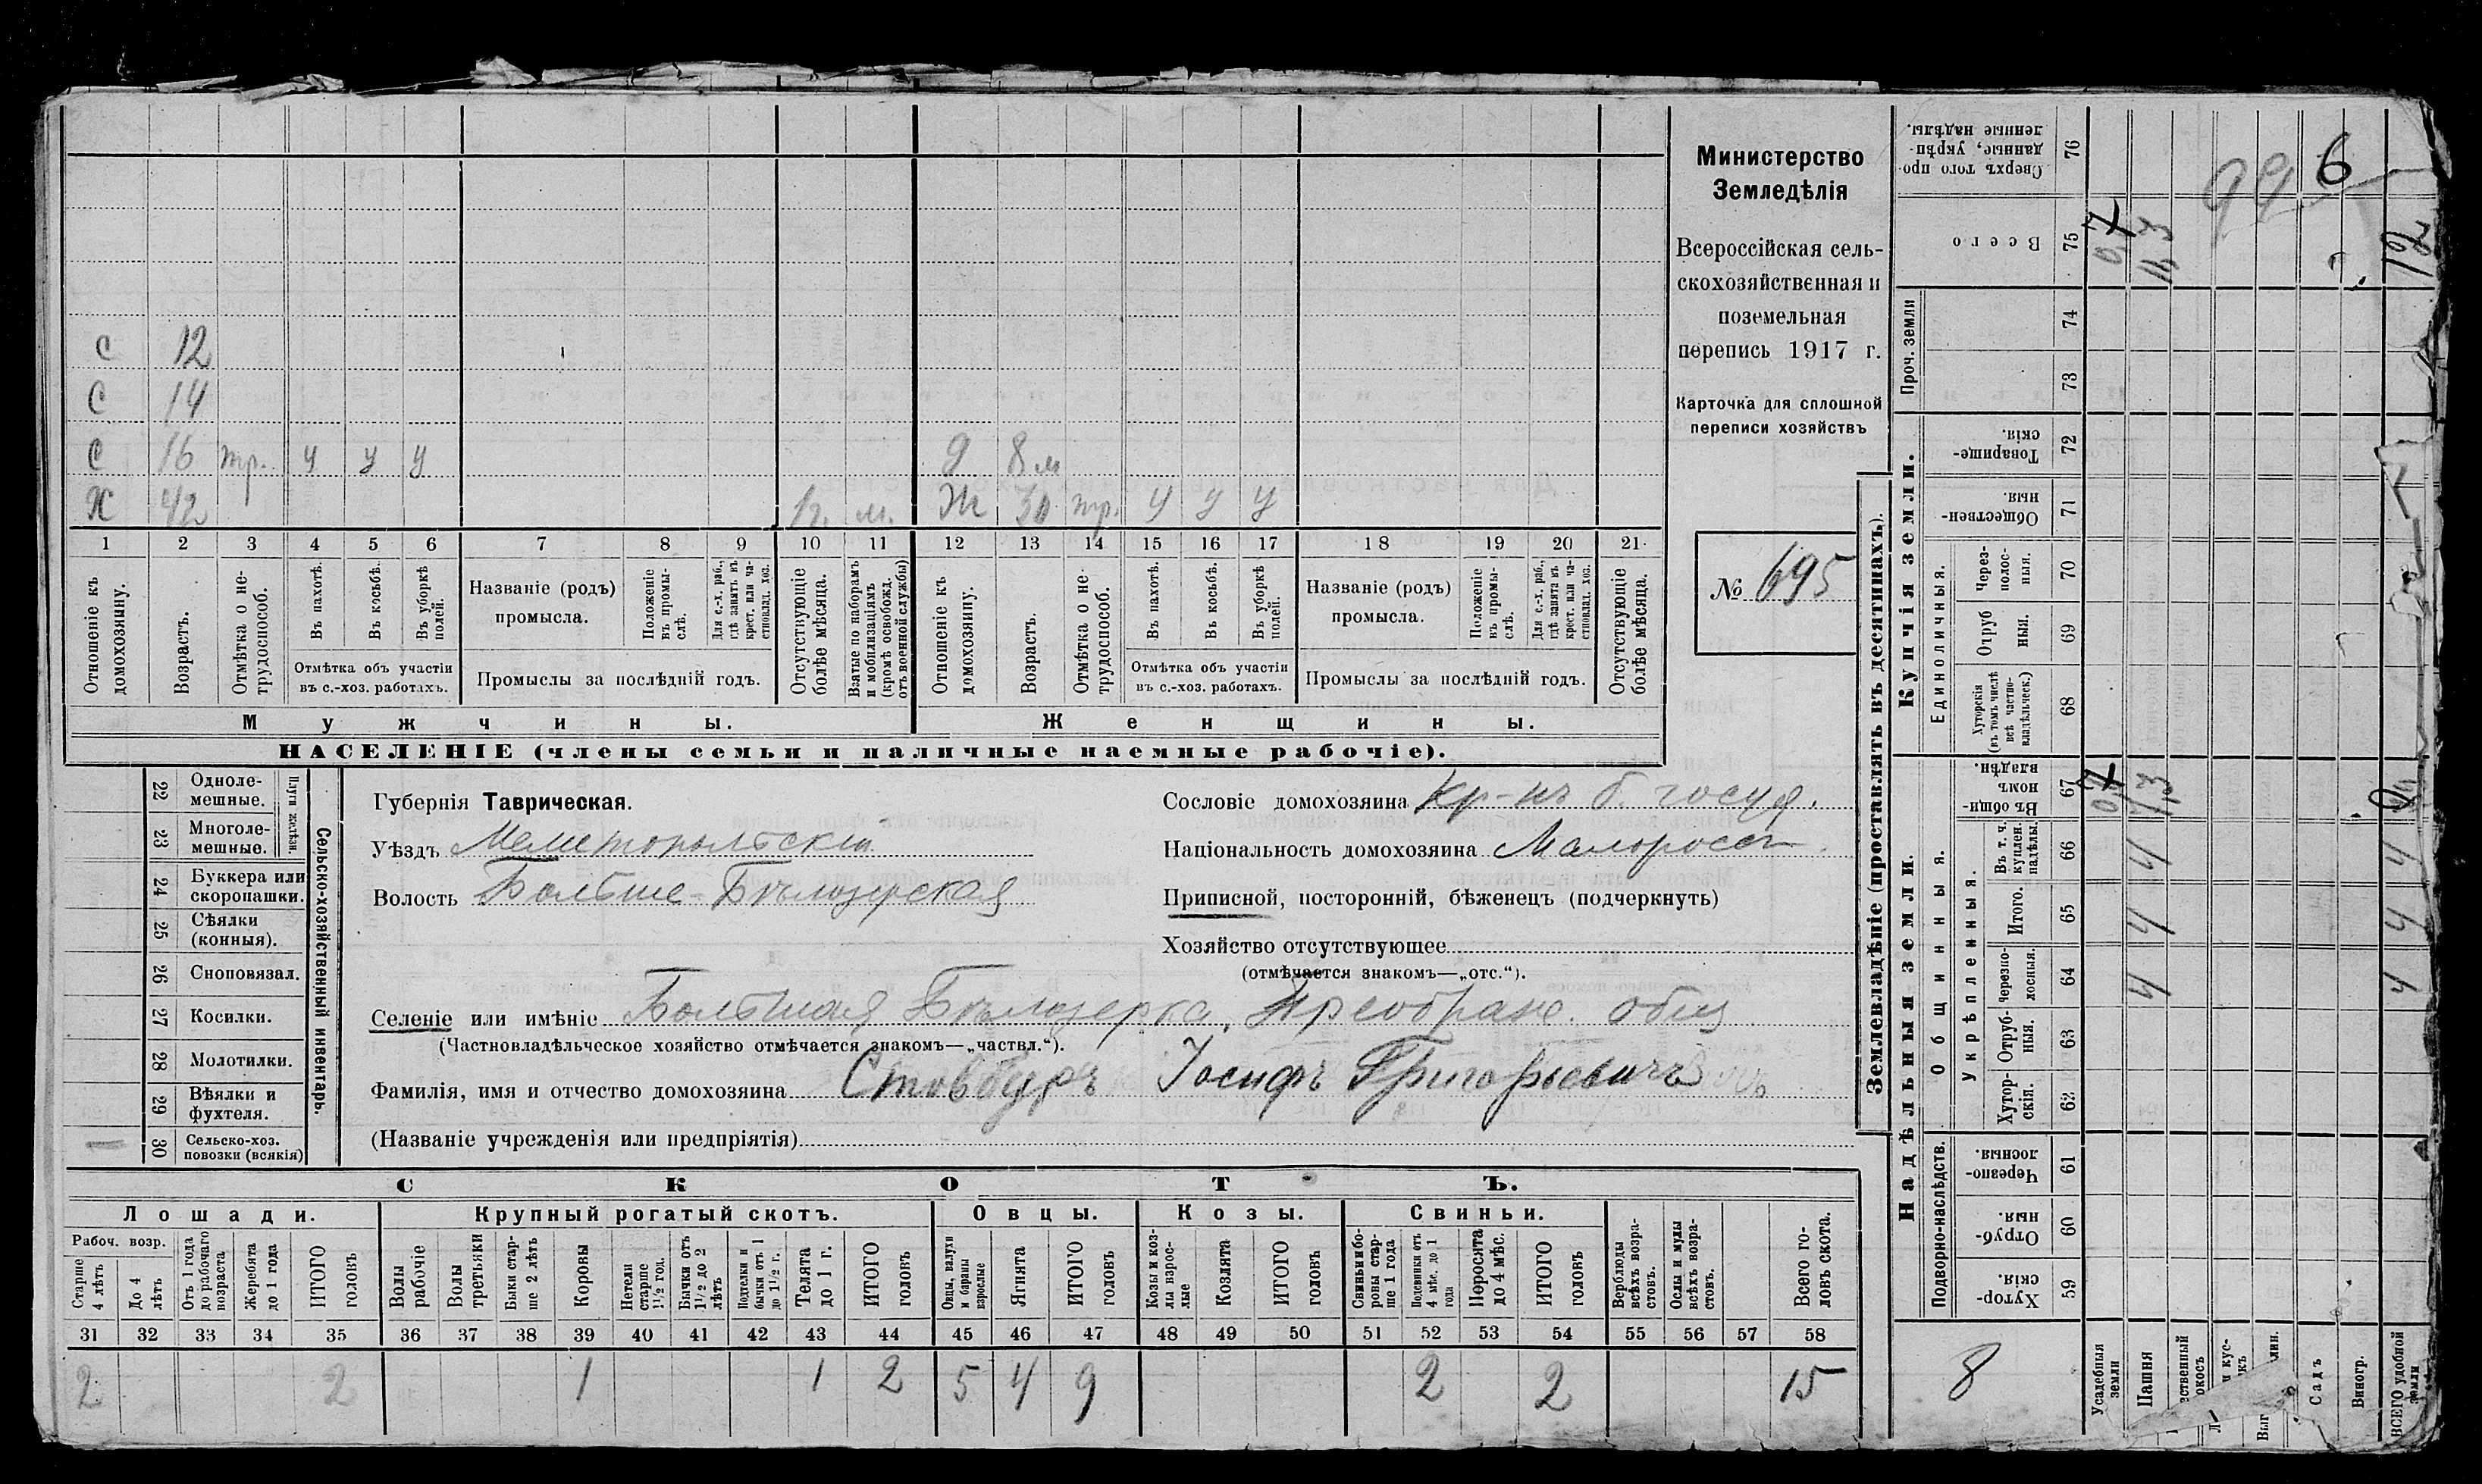 Министерство
Земледѣлія
Всероссійская сель-
скохозяйственная и
поземельная
перепись 1917 г.
Карточка для сплошной
переписи хозяйствъ
№ 695
С 12
С 14
С 16 тр. у у у
д 8 м
Х 42
1 г. м. Ж 30 тр. у у у
1 2 3 4 5 6 7 8 9 10 11 12 13 14 15 16 17 18 19 20 21
Отношеніе къ домохозяину.
Возрастъ.
Отмѣтка о не-трудоспособ.
Въ пахотѣ.
Въ косьбѣ.
Въ уборкѣ полей.
Отмѣтка объ участіи
въ с.-хоз. работахъ.
Названіе (родъ)
промысла.
Положеніе въ промы-слѣ.
Для с.-х. раб., гдѣ занятъ въ крест. или ча-стновлад. хоз.
Промыслы за послѣдній годъ.
Отсутствующіе болѣе мѣсяца.
Взятые по наборамъ и мобилизаціямъ (кромѣ освобожд. отъ военной службы)
Отношеніе къ домохозяину.
Возрастъ.
Отмѣтка о не-трудоспособ.
Въ пахотѣ.
Въ косьбѣ.
Въ уборкѣ полей.
Отмѣтка объ участіи
въ с.-хоз. работахъ.
Названіе (родъ)
промысла.
Положеніе въ промы-слѣ.
Для с.-х. раб., гдѣ занята въ крест. или ча-стновлад. хоз.
Промыслы за послѣдній годъ.
Отсутствующіе болѣе мѣсяца.
Мужчины.
Женщины.
НАСЕЛЕНІЕ (члены семьи и наличные наемные рабочіе).
Сельско-хозяйственный инвентарь.
Плуги желѣзн.
22 Одноле-мешные.
23 Многоле-мешные.
24 Буккера или скоропашки.
25 Сѣялки (конныя).
26 Сноповязал.
27 Косилки.
28 Молотилки.
29 Вѣялки и фухтеля.
1 30 Сельско-хоз. повозки (всякія)
Губернія Таврическая.
Уѣздъ Мелитопольскій
Волость Больше-Бѣлозерская
Сословіе домохозяина Кр-нъ б. госуд.
Національность домохозяина Малороссъ
Приписной, посторонній, бѣженецъ (подчеркнуть)
Хозяйство отсутствующее
(отмѣчается знакомъ—„отс.“).
Селеніе или имѣніе Большая Бѣлозерка, Преображ. общ
(Частновладѣльческое хозяйство отмѣчается знакомъ—„частвл.“).
Фамилія, имя и отчество домохозяина Стовбуръ Іосифъ Григорьевичъ
(Названіе учрежденія или предпріятія)
СКОТЪ.
Лошади. Крупный рогатый скотъ. Овцы. Козы. Свиньи.
Рабоч. возр.
Старше 4 лѣтъ
До 4 лѣтъ
Отъ 1 года до рабочаго возраста
Жеребята до 1 года
ИТОГО головъ
Волы рабочіе
Волы третьяки
Быки стар-ше 2 лѣтъ
Коровы
Нетели старше 1½ год.
Бычки отъ 1½ до 2 лѣтъ
Подтелки и бычки отъ 1 до 1½ г.
Телята до 1 г.
ИТОГО головъ
Овцы, валухи и бараны взрослые
Ягнята
ИТОГО головъ
Козы и коз-лы взрос-лые
Козлята
ИТОГО головъ
Свиньи и бо-ровы стар-ше 1 года
Подсвинки отъ 4 мѣс. до 1 года
Поросята до 4 мѣс.
ИТОГО головъ
Верблюды всѣхъ возра-стовъ.
Ослы и мулы всѣхъ возра-стовъ.
Всего го-ловъ скота.
31 32 33 34 35 36 37 38 39 40 41 42 43 44 45 46 47 48 49 50 51 52 53 54 55 56 57 58
2 2 1 1 2 5 4 9 2 2 15
Землевладѣніе (проставлять въ десятинахъ).
Надѣльныя земли.
Купчія земли.
Проч. земли
Подворно-наслѣдств.
Общинныя.
Укрѣпленныя.
Единоличныя.
76 Сверхъ того про-данные, укрѣп-ленные надѣлы.
75 Всего
74
73
72 Товарище-скія.
71 Обществен-ныя.
70 Через-полос-ныя.
69 Отруб ныя.
68 Хуторскія (въ томъ числѣ всѣ частно-владѣльческ.)
67 Въ общи-номъ владѣн.
66 Въ т. ч. куплен. надѣлы.
65 Итого.
64 Черезпо-лосныя.
63 Отруб-ныя.
62 Хутор-скія.
61 Черезпо-лосныя.
60 Отруб-ныя.
59 Хутор-скія.
Усадебныя земли
Пашня
Садъ
Виногр.
ВСЕГО удобной земли
6
99
12
4 4 4
4 4 4
8